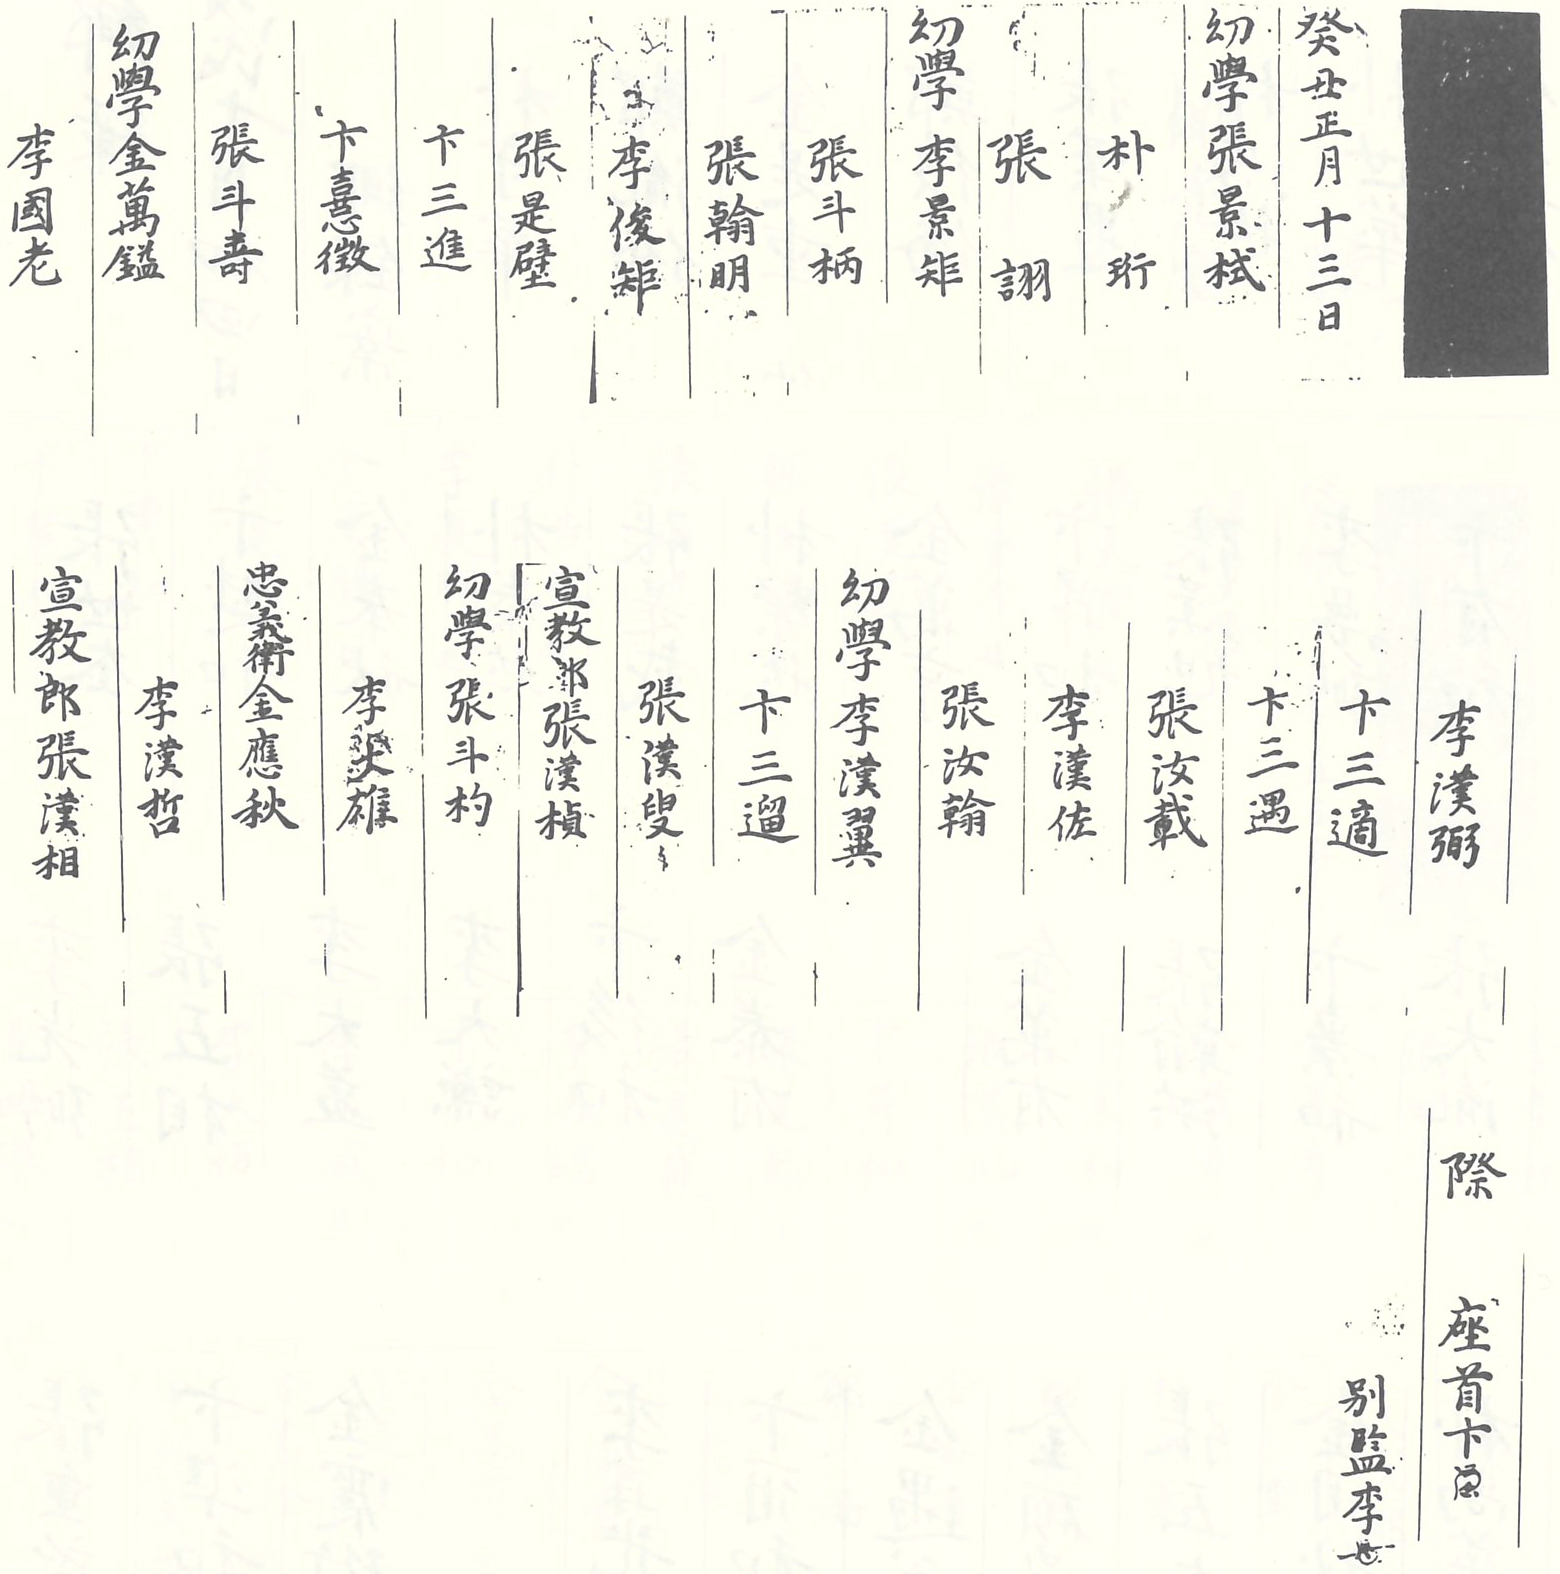 癸丑正月十三日
幼學張景栻
朴珩
張詡
幼學李景矩
張斗柄
張翰明
李俊矩
張是璧
卞三進
卞憙徵
張斗壽
幼學金萬鎰
李國老
李漢弼
卞三適
卞三遇
張汝載
李漢佐
張汝翰
幼學李漢翼
卞三遛
張漢叟
宣教郎張漢楨
幼學張斗杓
李 雄
忠義衛金應秋
李漢哲
宣教郎張漢相
際 座首卞
別監李